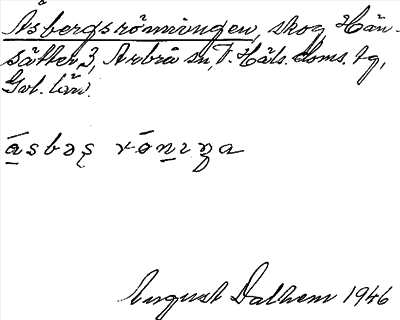 Åsbergsrönningen, skog Hän-
sätter 3, Arbrå sn, V. Häls. doms. tg,
Gvl. län.
åsbəș rönıŋa
August Dalhem 1946